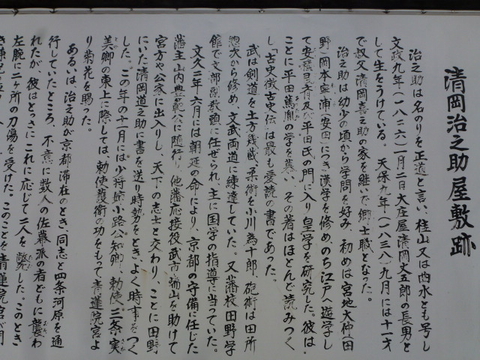 清岡治之助屋敷跡
治之助は名のりを正道と言い、桂山又は西水とも号し
文政九年(一八二六)一月二日大庄屋清岡文五郎の長男と
して生をうけている。天保九年(一八三八)九月には十一才
で叔父清岡喜三助の家を継で郷士職となった。
治之助は幼少の頃から学問を好み、初めは宮地大仲(田
野)岡本寧浦(安田)につき漢学を修めのち江戸へ遊学し
て安
及び平田氏の門に入り皇学を研究した。彼は
ことに平田篤胤の学を
その著はほとんど読みつく
し「古史徴古史伝」は最も愛読の書であった。
武は剣道を土方
柔術を小川
砲術は田所
から修め、文武両道に練達していた。又藩校田野学
館で文部
教頭に任ぜられ、主に国学の指導に当っていた。
文久二年六月には朝廷の命により、京都の守備に任じた
藩主山内豊範公に随行し、他藩応接役武市瑞山を助けて
宮方や公家に出入りし、天下の志士と交わり、ことに田野
にいた清岡道之助へ書を送り時勢をときよく時事をつく
した。この年の十一月には少将姉小路公知卿、勅使三条実
美卿の東上に際しては、勅使護衛の功をもて青蓮院宮よ
り菊花を賜った。
あるいは、治之助が京都滞在のとき、同志と四条河原を通
行していたところ、不意に数人の佐幕派の者どもに襲わ
れたが、彼はとっさにこれに応じて二人を
したとき、
左腕に二ヶ所の刀傷を受けた。このことを青蓮院宮が聞